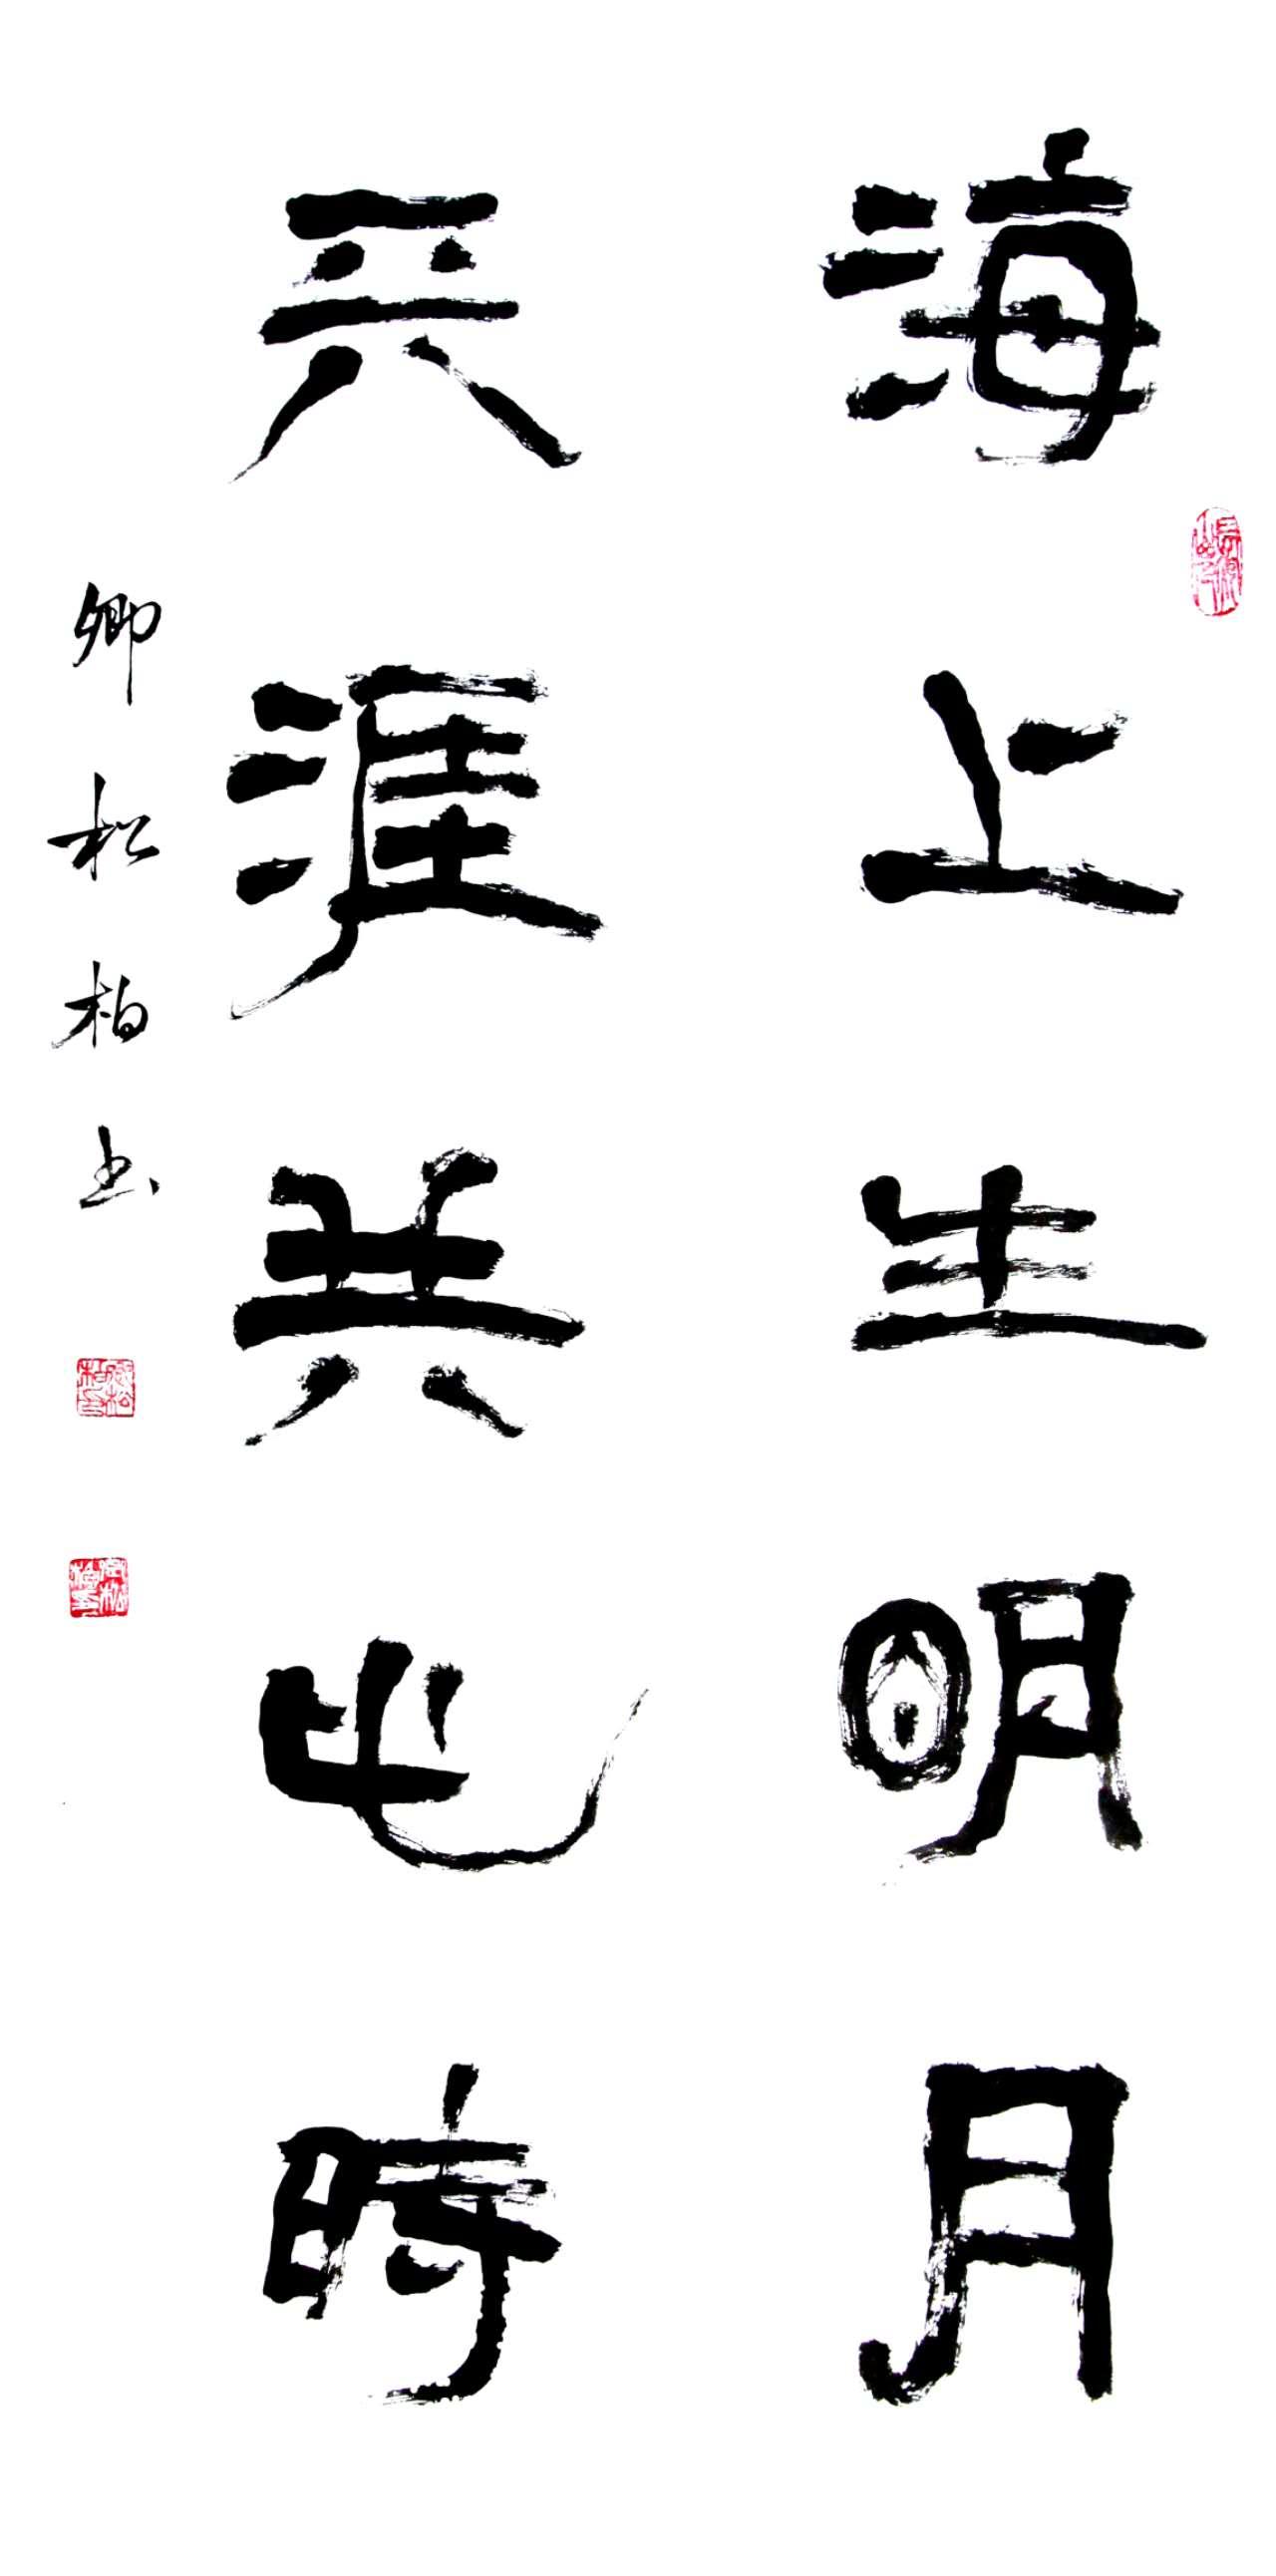 海上生明月
天涯共此時
卿松柏书